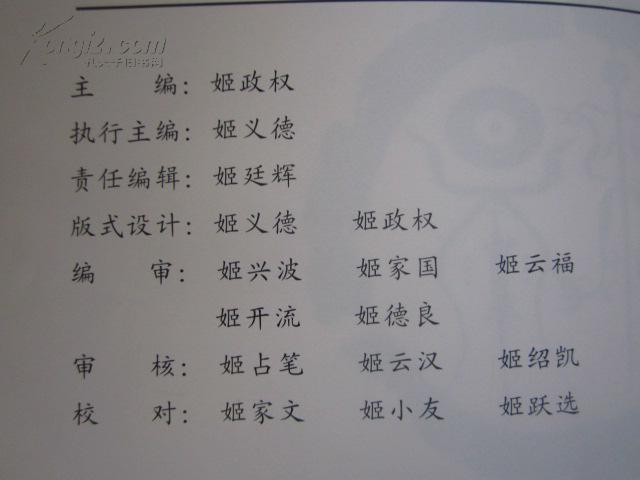 Kongfz.com
孔夫子旧书网
主　　编：姬政权
执行主编：姬义德
责任编辑：姬廷辉
版式设计：姬义德　　姬政权
编　　审：姬兴波　　姬家国　　姬云福
姬开流　　姬德良
审　　核：姬占笔　　姬云汉　　姬绍凯
校　　对：姬家文　　姬小友　　姬跃选